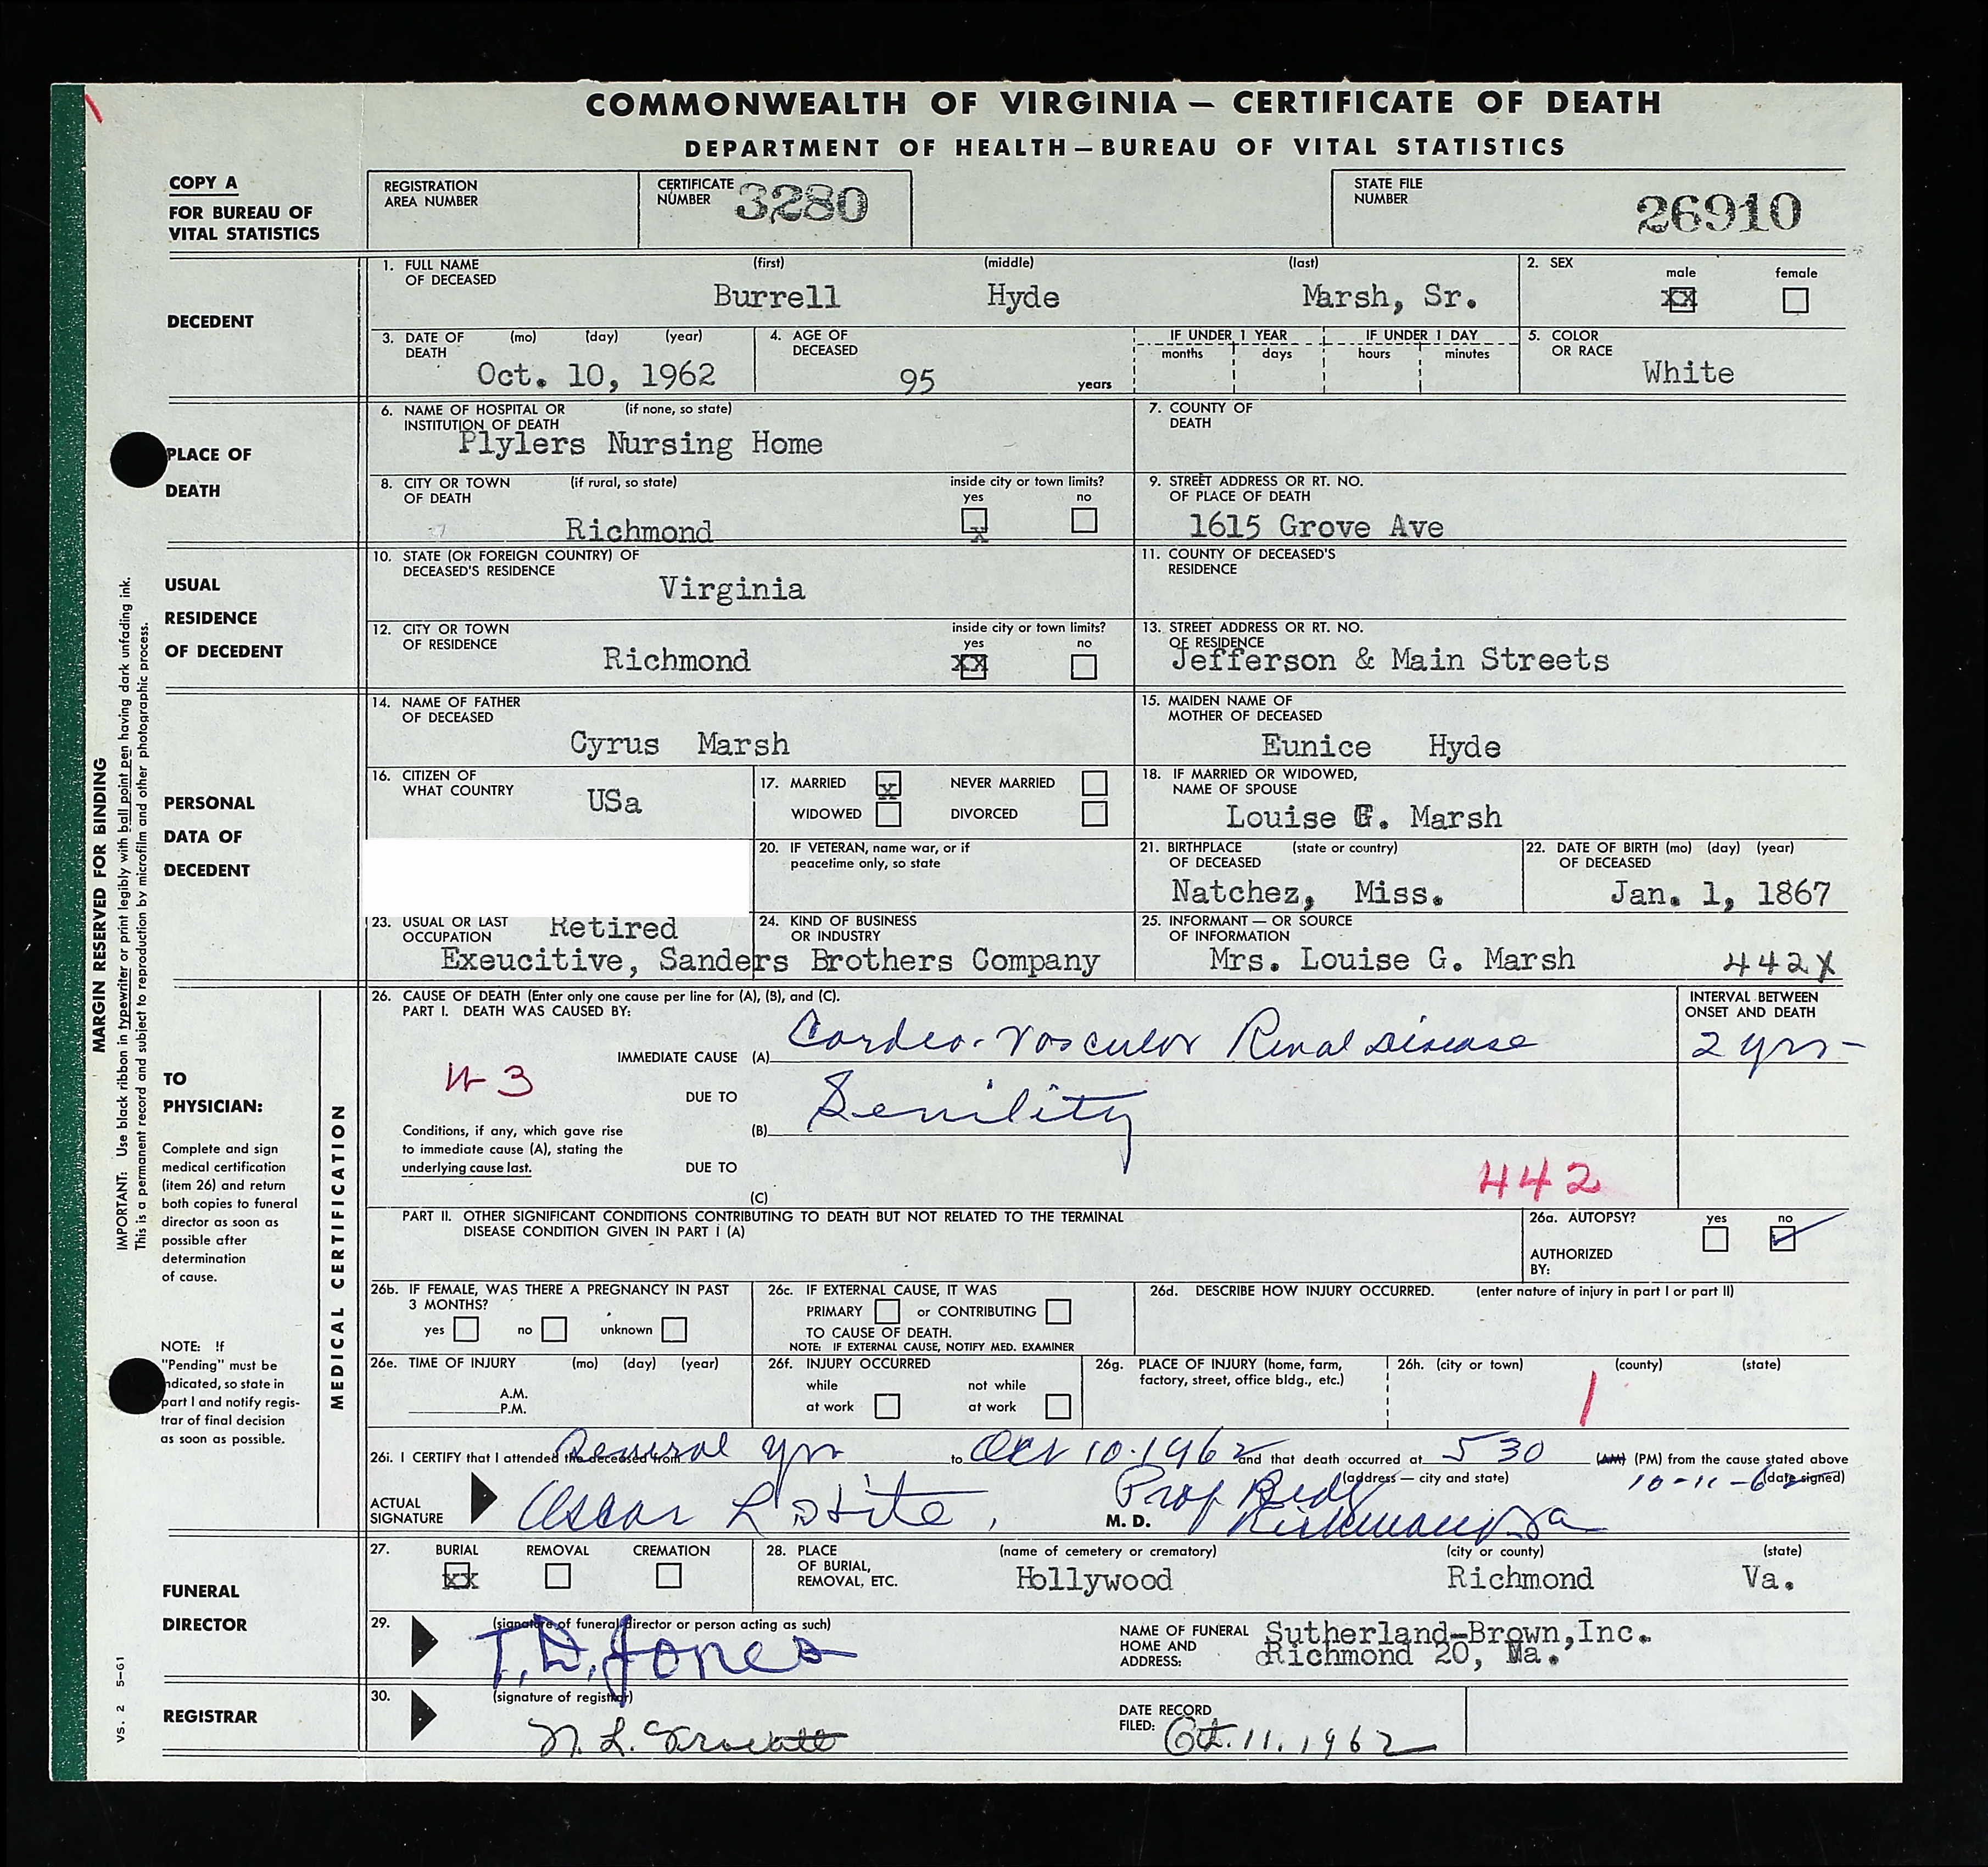 COMMONWEALTH OF VIRGINIA — CERTIFICATE OF DEATH
DEPARTMENT OF HEALTH — BUREAU OF VITAL STATISTICS
COPY A
FOR BUREAU OF
VITAL STATISTICS
REGISTRATION
AREA NUMBER
CERTIFICATE
NUMBER 3280
STATE FILE
NUMBER 26910
DECEDENT
1. FULL NAME OF DECEASED (first) (middle) (last)
Burrell Hyde Marsh, Sr.
2. SEX male female
XX
3. DATE OF DEATH (mo) (day) (year)
Oct. 10, 1962
4. AGE OF DECEASED
95 years
IF UNDER 1 YEAR
months days
IF UNDER 1 DAY
hours minutes
5. COLOR OR RACE
White
PLACE OF
DEATH
6. NAME OF HOSPITAL OR (if none, so state)
INSTITUTION OF DEATH
Plylers Nursing Home
7. COUNTY OF
DEATH
8. CITY OR TOWN (if rural, so state)
OF DEATH
Richmond
inside city or town limits?
yes no
x
9. STREET ADDRESS OR RT. NO.
OF PLACE OF DEATH
1615 Grove Ave
USUAL
RESIDENCE
OF DECEDENT
10. STATE (OR FOREIGN COUNTRY) OF
DECEASED'S RESIDENCE
Virginia
11. COUNTY OF DECEASED'S
RESIDENCE
12. CITY OR TOWN
OF RESIDENCE
Richmond
inside city or town limits?
yes no
XX
13. STREET ADDRESS OR RT. NO.
OF RESIDENCE
Jefferson & Main Streets
PERSONAL
DATA OF
DECEDENT
14. NAME OF FATHER
OF DECEASED
Cyrus Marsh
15. MAIDEN NAME OF
MOTHER OF DECEASED
Eunice Hyde
16. CITIZEN OF
WHAT COUNTRY
USa
17. MARRIED x NEVER MARRIED
WIDOWED DIVORCED
18. IF MARRIED OR WIDOWED,
NAME OF SPOUSE
Louise G. Marsh
20. IF VETERAN, name war, or if
peacetime only, so state
21. BIRTHPLACE (state or country)
OF DECEASED
Natchez, Miss.
22. DATE OF BIRTH (mo) (day) (year)
OF DECEASED
Jan. 1, 1867
23. USUAL OR LAST
OCCUPATION
Retired
Exeucitive, Sanders Brothers Company
24. KIND OF BUSINESS
OR INDUSTRY
25. INFORMANT — OR SOURCE
OF INFORMATION
Mrs. Louise G. Marsh
442X
TO
PHYSICIAN:
Complete and sign
medical certification
(item 26) and return
both copies to funeral
director as soon as
possible after
determination
of cause.
NOTE: If
"Pending" must be
ndicated, so state in
part I and notify regis-
trar of final decision
as soon as possible.
MEDICAL CERTIFICATION
26. CAUSE OF DEATH (Enter only one cause per line for (A), (B), and (C).
PART I. DEATH WAS CAUSED BY:
INTERVAL BETWEEN
ONSET AND DEATH
IMMEDIATE CAUSE (A) Cardio-Vascular Renal Disease
2 yrs-
3
DUE TO
(B) Senility
Conditions, if any, which gave rise
to immediate cause (A), stating the
underlying cause last.
DUE TO
(C)
442
PART II. OTHER SIGNIFICANT CONDITIONS CONTRIBUTING TO DEATH BUT NOT RELATED TO THE TERMINAL
DISEASE CONDITION GIVEN IN PART I (A)
26a. AUTOPSY? yes no
AUTHORIZED
BY:
26b. IF FEMALE, WAS THERE A PREGNANCY IN PAST
3 MONTHS?
yes no unknown
26c. IF EXTERNAL CAUSE, IT WAS
PRIMARY or CONTRIBUTING
TO CAUSE OF DEATH.
NOTE: IF EXTERNAL CAUSE, NOTIFY MED. EXAMINER
26d. DESCRIBE HOW INJURY OCCURRED. (enter nature of injury in part I or part II)
26e. TIME OF INJURY (mo) (day) (year)
A.M.
P.M.
26f. INJURY OCCURRED
while not while
at work at work
26g. PLACE OF INJURY (home, farm,
factory, street, office bldg., etc.)
26h. (city or town) (county) (state)
26i. I CERTIFY that I attended the deceased from Several yrs to Oct 10-1962 and that death occurred at 5 30 (AM) (PM) from the cause stated above
(address — city and state) (date signed)
10-11-62
ACTUAL
SIGNATURE
Oscar L
M. D.
Prof Bldg
Richmond, Va
FUNERAL
DIRECTOR
27. BURIAL REMOVAL CREMATION
XX
28. PLACE
OF BURIAL,
REMOVAL, ETC.
(name of cemetery or crematory) (city or county) (state)
Hollywood Richmond Va.
29. (signature of funeral director or person acting as such)
T.D. Jones
NAME OF FUNERAL
HOME AND
ADDRESS:
Sutherland-Brown, Inc.
Richmond 20, Va.
REGISTRAR
30. (signature of registrar)
DATE RECORD
FILED: Oct. 11, 1962
MARGIN RESERVED FOR BINDING
IMPORTANT: Use black ribbon in typewriter or print legibly with ball point pen having dark unfading ink.
This is a permanent record and subject to reproduction by microfilm and other photographic process.
VS. 2 5-61